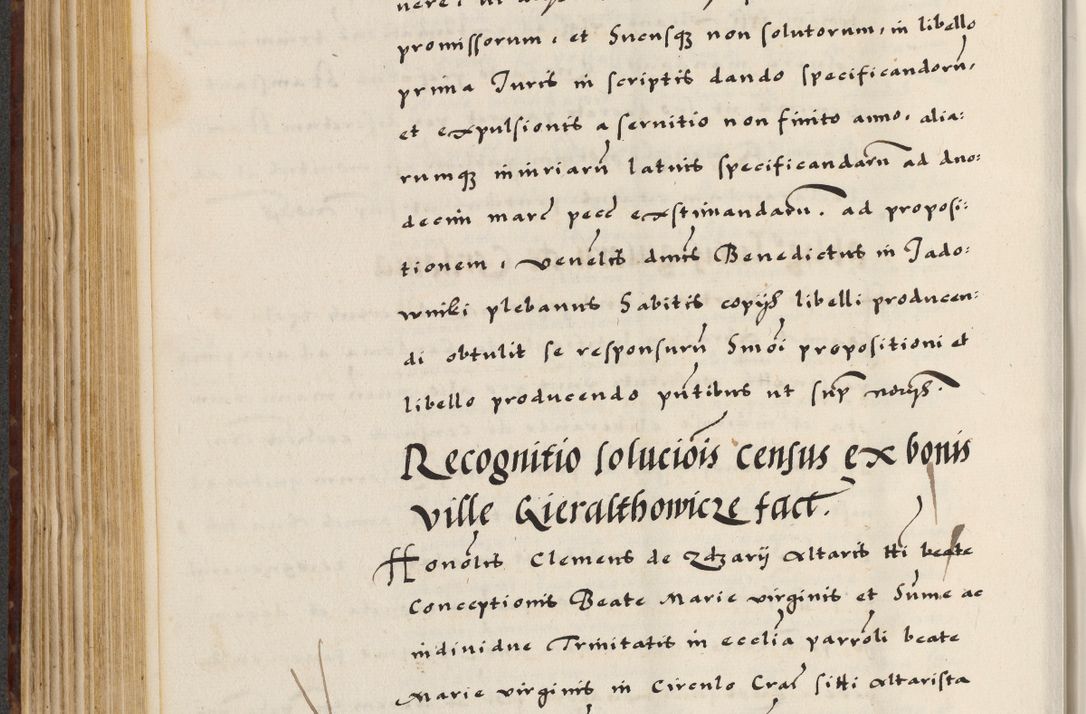 promissorum, et Suensqꝫ non solutorum, in libello
prima Juris in scriptis dando specificandoru͂,
et expulsionis a seruitio non finito anno, alia:
rumqꝫ iniuriaru͂ latius specificandaru͂ ad duo:
decim marc̄ pecc̄ extimandaru͂. ad proposi:
tionem, venel͂is dnu͂s Benedictus in Jado:
wniki plebanus habitis copijs libelli producen:
di obtulit se responsuru͂ hmo͂i propositioni et
libello producendo pu͂tibus ut sup̄ notarijs.
Recognitio solucio͂is census ex bonis
ville Gieralthowicze fact̄.
Hono͂lis Clemens de Zdzarij Altaris tti͂ beate
Conceptionis Beate Marie virginis et Su͂me ac
indiuidue Trinitatis in eccl͂ia parro͂li beate
Marie virginis in Circulo Crac̄ siti Altarista